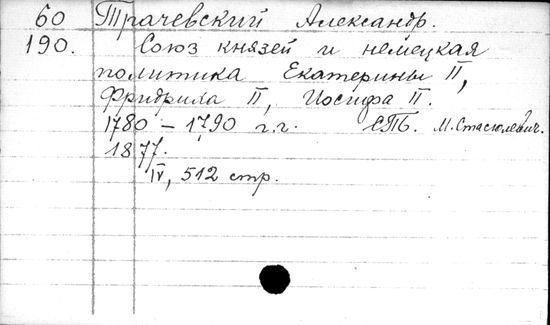 60 Трачевский Александр.
190. Союз князей и немецкая
политика Екатерины II,
Фридриха II, Иосифа II.
1780 - 1790 г.г. СПБ. М. Стасюлевич.
1877.
IV, 512 стр.